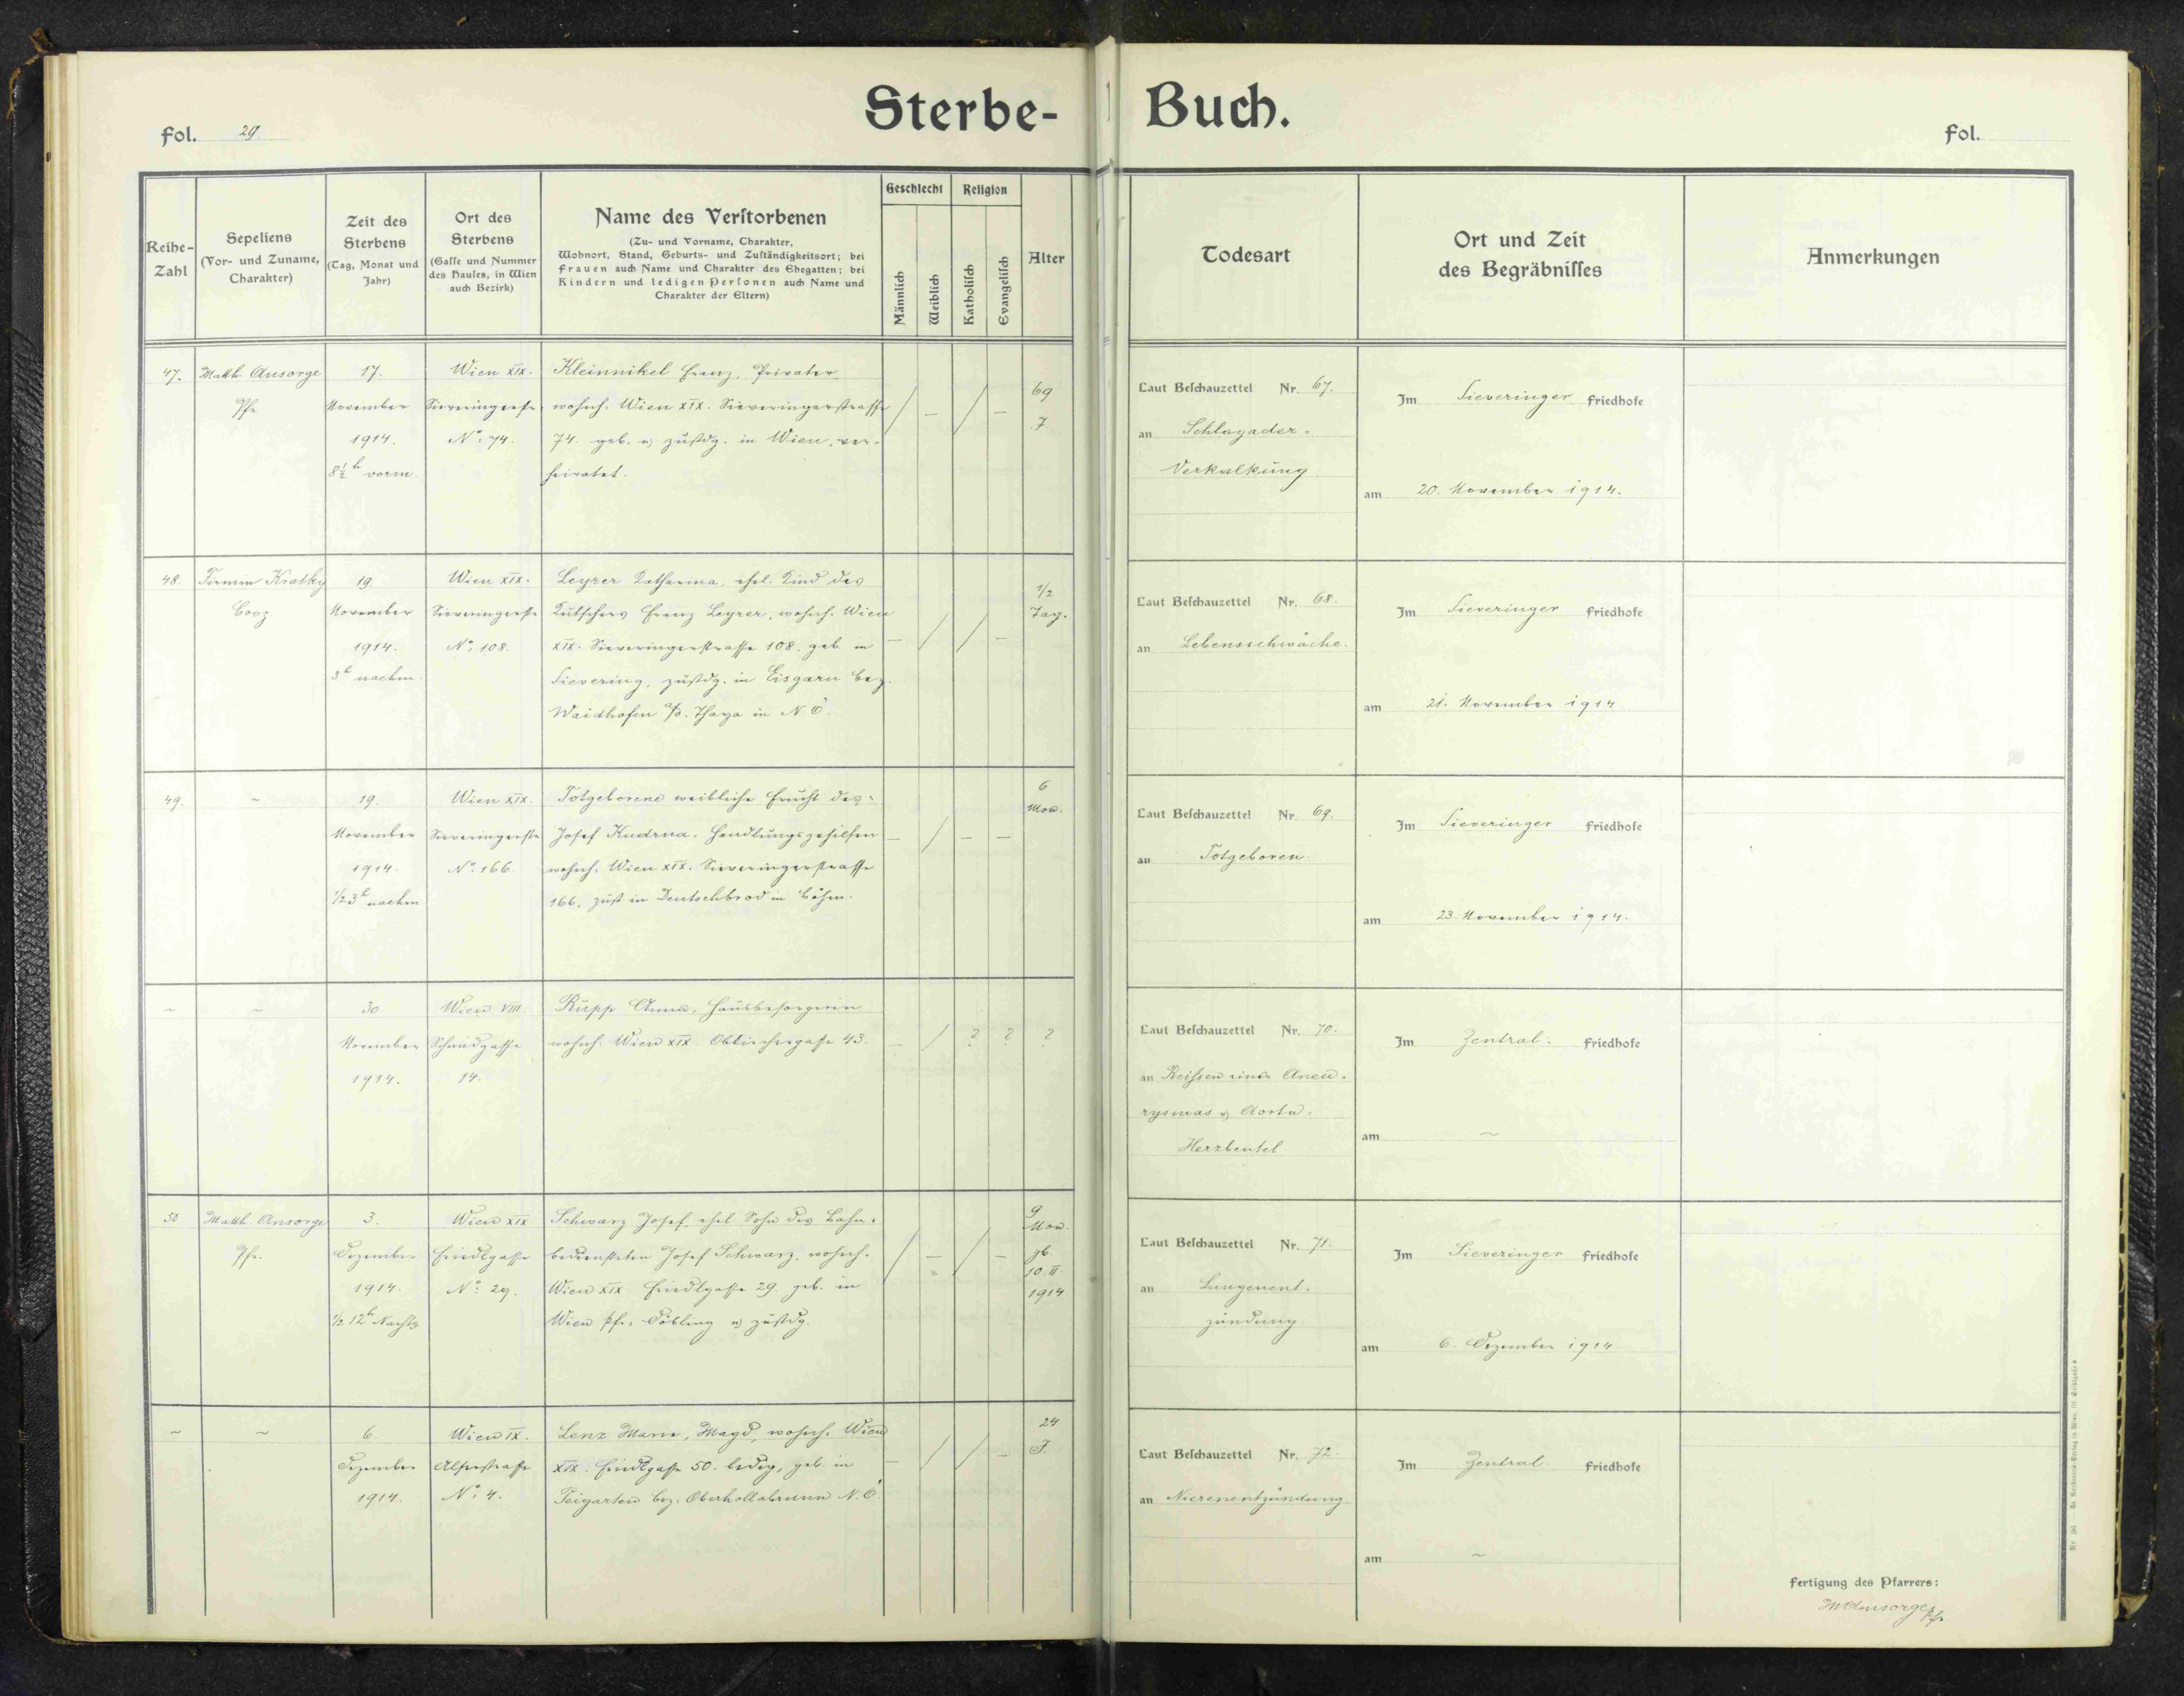 Sterbe-Buch.
fol. 29
fol.
Reihe-Zahl
Sepeliens
(Vor- und Zuname, Charakter)
Zeit des Sterbens
(Tag, Monat und Jahr)
Ort des Sterbens
(Gasse und Nummer des Hauses, in Wien auch Bezirk)
Name des Verstorbenen
(Zu- und Vorname, Charakter,
Wohnort, Stand, Geburts- und Zuständigkeitsort; bei
Frauen auch Name und Charakter des Ehegatten; bei
Kindern und ledigen Personen auch Name und
Charakter der Eltern)
Geschlecht
Männlich
Weiblich
Religion
Katholisch
Evangelisch
Alter
Todesart
Ort und Zeit
des Begräbnisses
Anmerkungen
47.
Matth. Ansorge
Pfr.
17.
November
1914.
8½ h vorm.
Wien XIX.
Sieveringerstr.
No: 74.
Kleinnikel Franz, Privater,
wohnh. Wien XIX. Sieveringerstrasse
74. geb. u. zustdg. in Wien, ver-
heiratet.
/ – / –
69
J
Laut Beschauzettel Nr. 67.
an Schlagader-
Verkalkung
Im Sieveringer Friedhofe
am 20. November 1914.
48.
Firmin Kratky
Coop.
19.
November
1914.
3h nachm.
Wien XIX.
Sieveringerstr.
No: 108.
Leyrer Katharina, ehel. Kind des
Kutschers Franz Leyrer, wohnh. Wien
XIX. Sieveringerstrasse 108. geb. in
Sievering, zustdg. in Eisgarn Bez.
Waidhofen a/d. Thaya in N.Ö.
– / / –
1/2
Tag.
Laut Beschauzettel Nr. 68.
an Lebensschwäche.
Im Sieveringer Friedhofe
am 21. November 1914
49.
~
19.
November
1914.
1/2 3h nachm
Wien XIX.
Sieveringerstr
No: 166.
Totgeborene weibliche Frucht des
Josef Kudrna, Handlungsgehilfen
wohnh. Wien XIX. Sieveringerstrasse
166. zust in Deutschbrod in Böhm.
– / – –
6
Mon.
Laut Beschauzettel Nr. 69.
an Totgeboren
Im Sieveringer Friedhofe
am 23. November 1914.
~
~
30
November
1914.
Wien VIII.
Schmidgasse
14.
Rupp Anna, Hausbesorgerin
wohnh. Wien XIX. Obkirchergasse 43.
– / ? ? ?
Laut Beschauzettel Nr. 70.
an Reissen eines Aneu-
rysmas d. Aorta.
Herzbeutel
Im Zentral- Friedhofe
am ~
50
Matth. Ansorge
Pfr.
3.
Dezember
1914.
1/2 12h Nachts
Wien XIX
Friedlgasse
No: 29.
Schwarz Josef, ehel. Sohn des Bahn-
bediensteten Josef Schwarz, wohnh.
Wien XIX. Friedlgasse 29. geb. in
Wien Pfr. Döbling u. zustdg.
/ – / –
9
Mon.
gb.
10.II.
1914
Laut Beschauzettel Nr. 71.
an Lungenent-
zündung.
Im Sieveringer Friedhofe
am 6. Dezember 1914
~
~
6.
Dezember
1914.
Wien IX.
Alserstrasse
No: 4.
Lenz Marie, Magd, wohnh. Wien
XIX. Friedlgasse 50. ledig, geb. in
Teigarten Bez. Oberhollabrunn N.Ö.
– / / –
24
J.
Laut Beschauzettel Nr. 72.
an Nierenentzündung
Im Zentral- Friedhofe
am ~
Fertigung des Pfarrers:
M Ansorge Pfr.